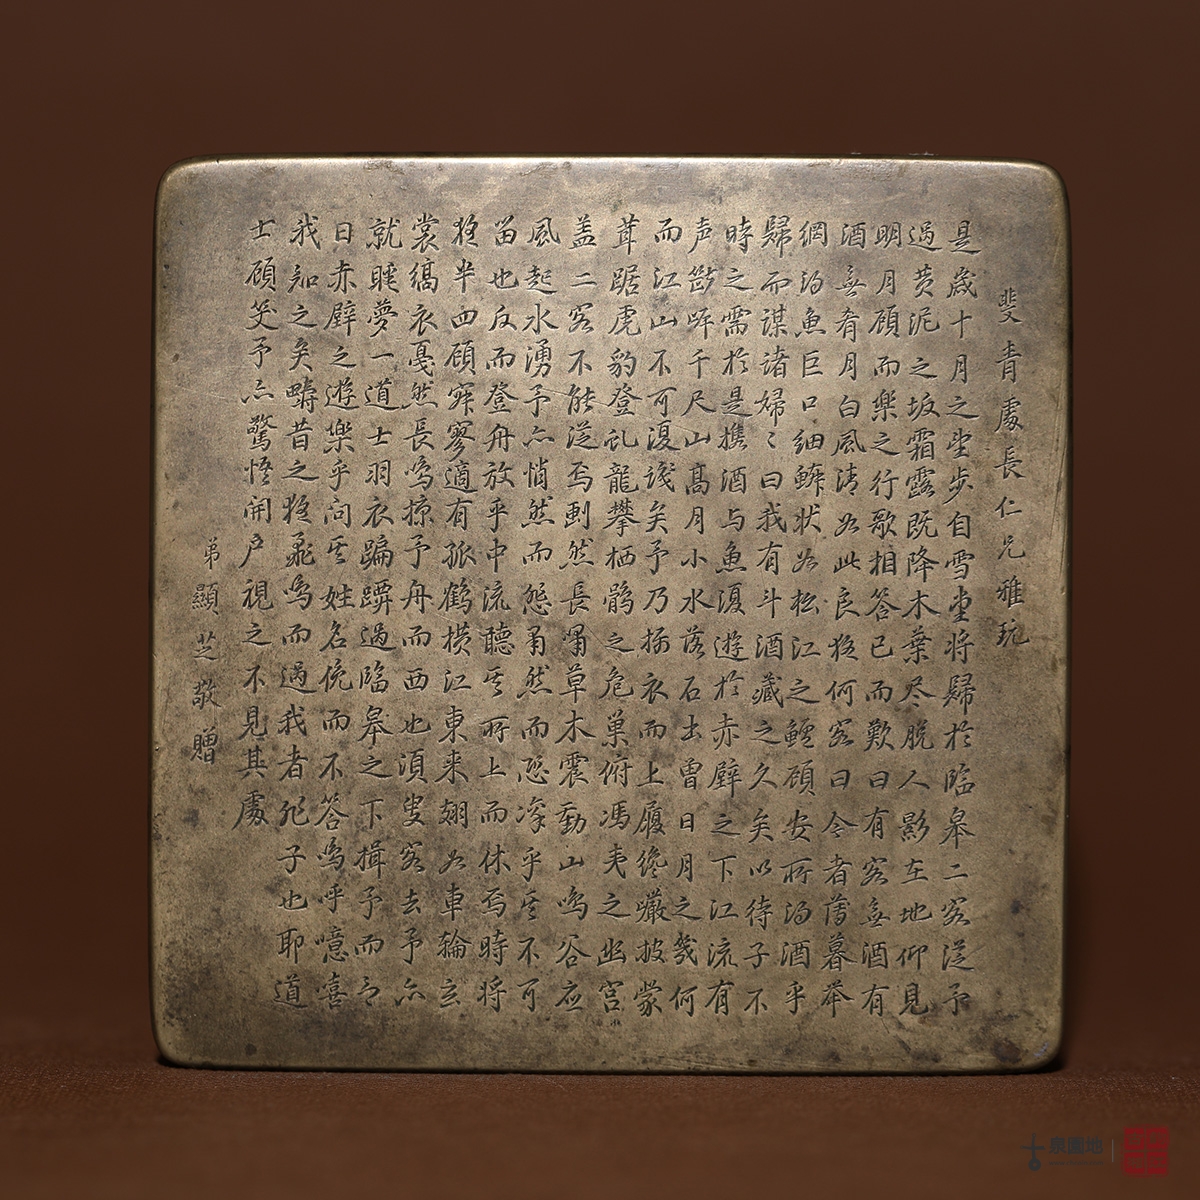 斐青處長仁兄雅玩
是歲十月之望步自雪堂将歸於臨皋二客從予
過黄泥之坂霜露既降木葉尽脱人影在地仰見
明月顧而樂之行歌相答已而歎曰有客無酒有
酒無肴月白風清如此良夜何客曰今者薄暮举
網得魚巨口细鱗状如松江之鱸顧安所得酒乎
歸而謀诸婦〻曰我有斗酒藏之久矣以待子不
時之需於是攜酒与魚復遊於赤壁之下江流有
声斷岸千尺山高月小水落石出曾日月之幾何
而江山不可復識矣予乃摄衣而上履巉巖披蒙
茸踞虎豹登虬龍攀栖鹘之危巢俯馮夷之幽宫
盖二客不能從焉劃然長嘯草木震動山鸣谷应
風起水湧予亦悄然而悲肅然而恐凛乎其不可
留也反而登舟放乎中流聽其所止而休焉時将
夜半四顧寂寥適有孤鶴横江東来翅如車輪玄
裳縞衣戛然長鸣掠予舟而西也須臾客去予亦
就睡夢一道士羽衣蹁躚過臨皋之下揖予而言
曰赤壁之遊樂乎问其姓名俛而不答嗚呼噫嘻
我知之矣疇昔之夜飛鸣而過我者非子也耶道
士顧笑予亦驚悟開户視之不見其處
弟顯芝敬贈
泉園地